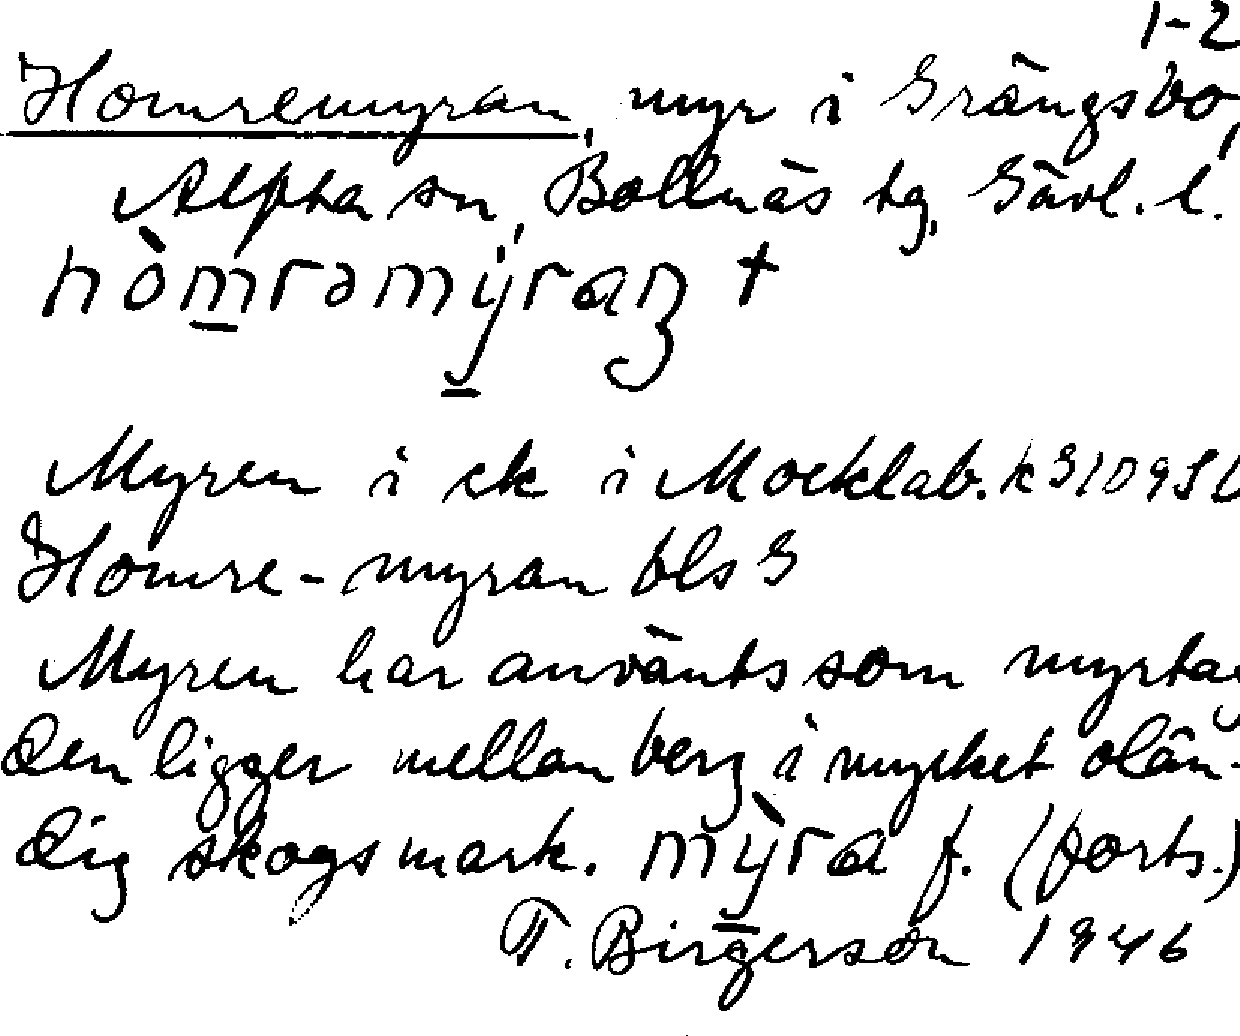 1-2
Homremyran, myr i Grängsbo,
Alfta sn, Bollnäs tg, Gävl. l.
hòmrəmýran +
Myren i ek i Mocklab. k
Homre-myran bls
Myren har använts som myrtag
den ligger mellan berg i mycket olän-
dig skogsmark. mỳra f. (forts.)
T. Birgerson 1946